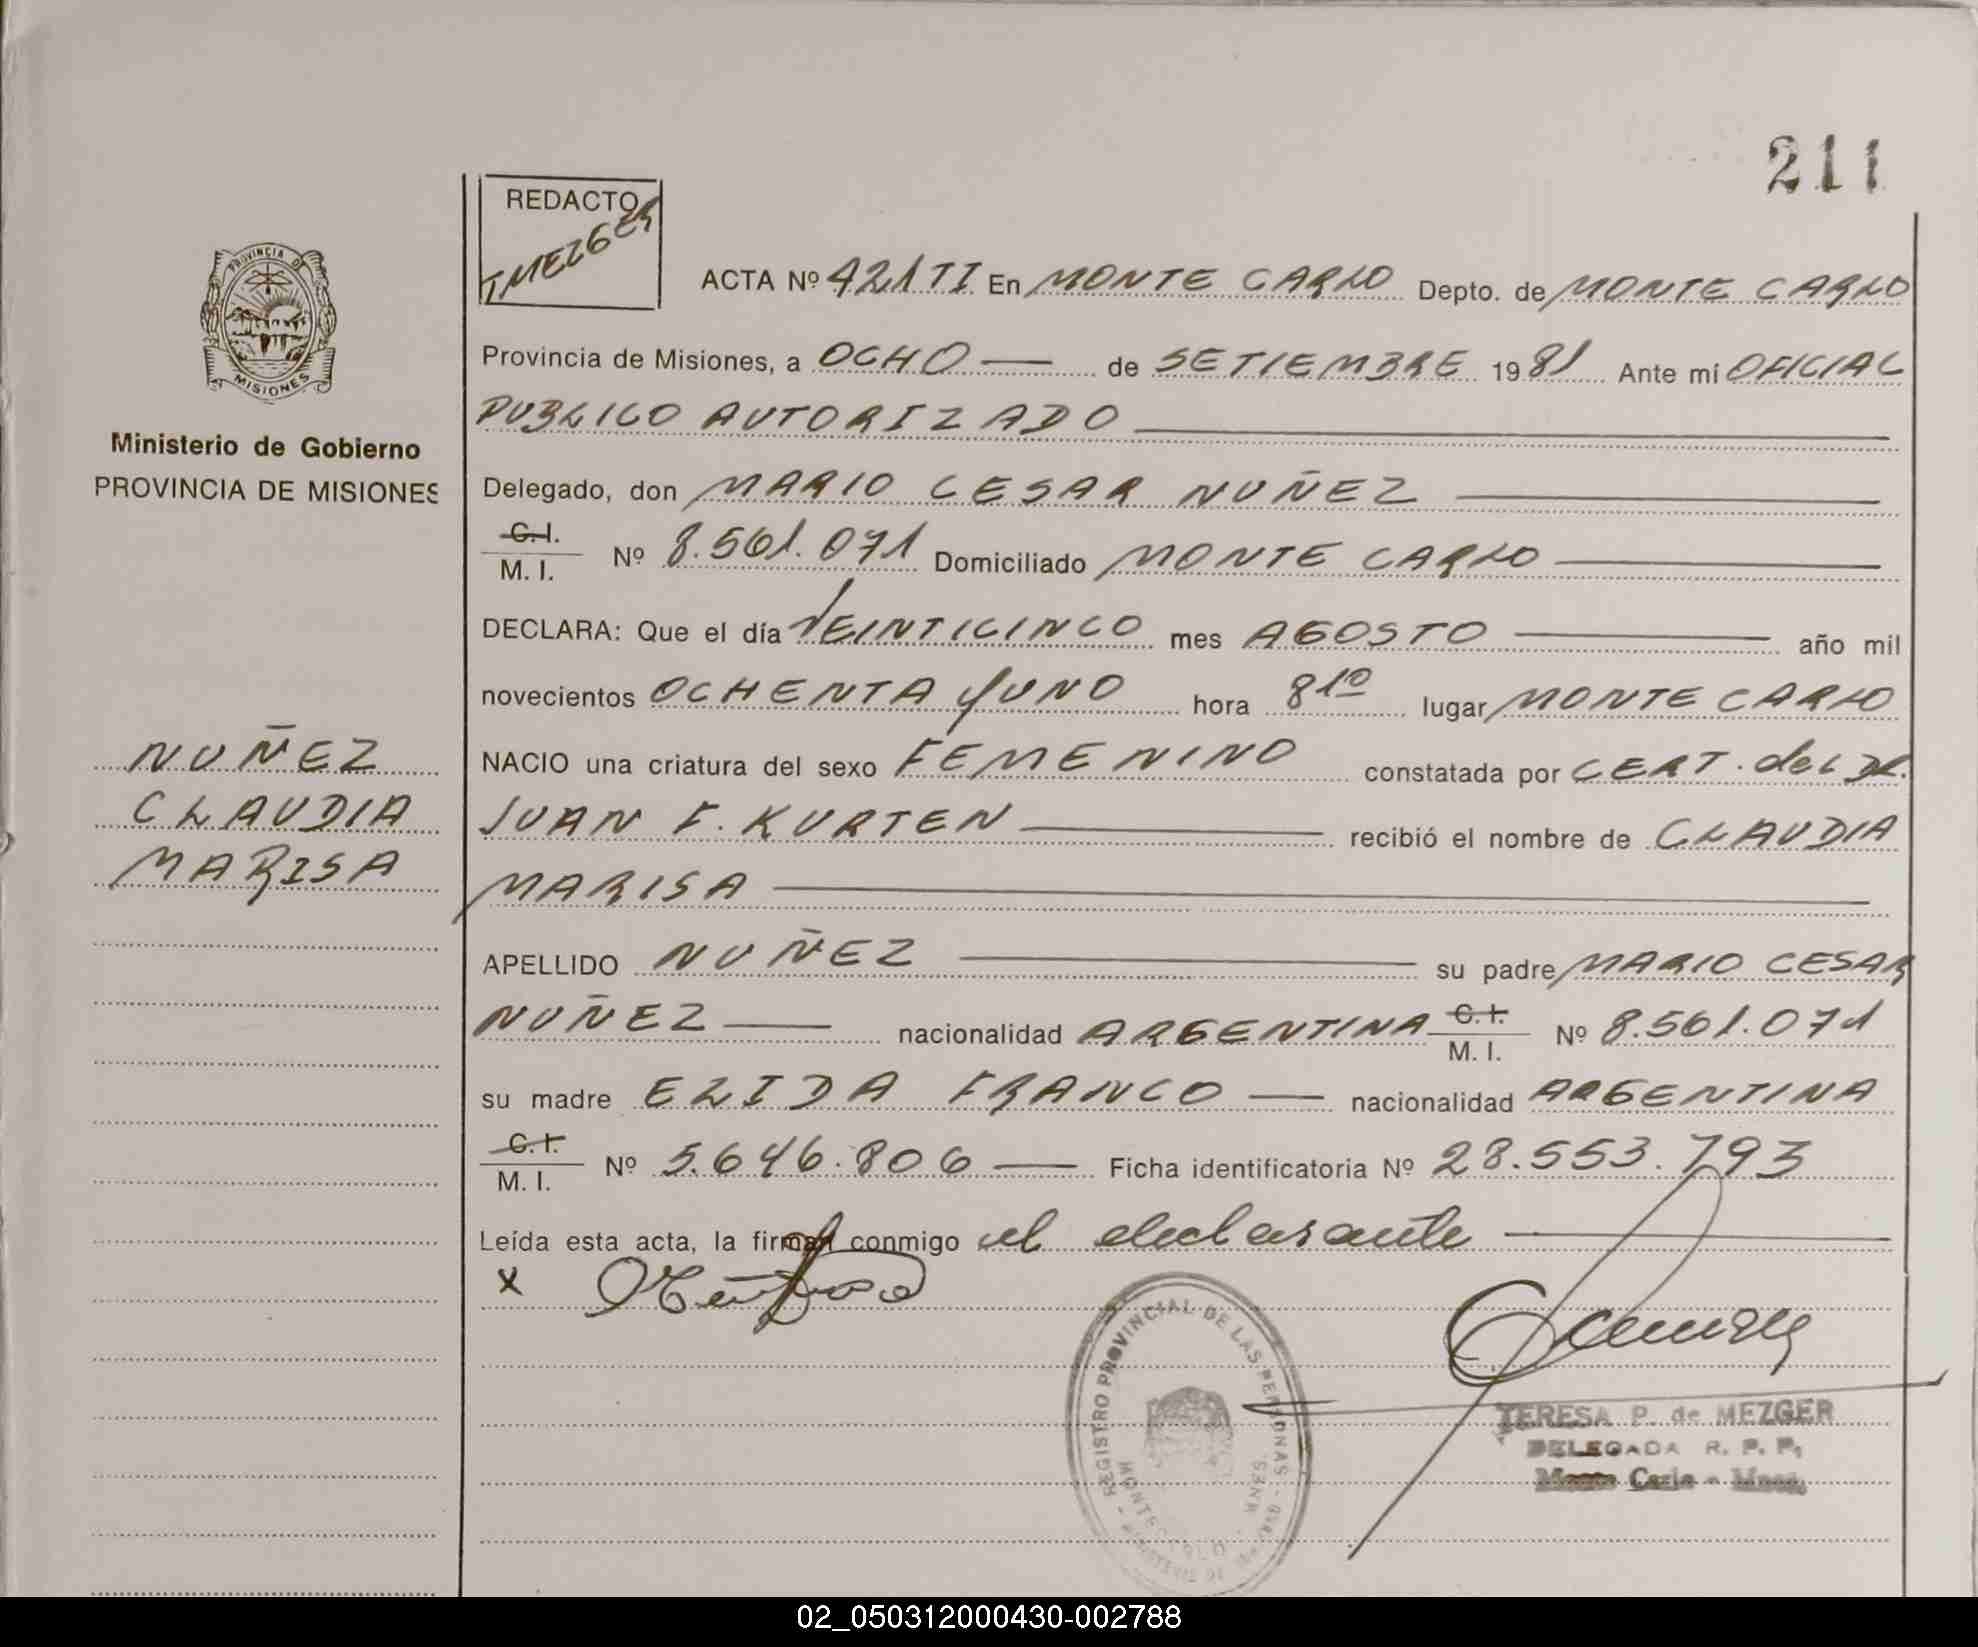 211
REDACTO
TMEZGER
PROVINCIA DE
MISIONES
Ministerio de Gobierno
PROVINCIA DE MISIONES
NUÑEZ
CLAUDIA
MARISA
ACTA Nº 421 TI En MONTE CARLO Depto. de MONTE CARLO
Provincia de Misiones, a OCHO — de SETIEMBRE 1981 Ante mí OFICIAL
PUBLICO AUTORIZADO
Delegado, don MARIO CESAR NUÑEZ
C.I.
M. I. Nº 8.561.071 Domiciliado MONTE CARLO
DECLARA: Que el día VEINTICINCO mes AGOSTO año mil
novecientos OCHENTA Y UNO hora 8 10 lugar MONTE CARLO
NACIO una criatura del sexo FEMENINO constatada por CERT. del DR.
JUAN F. KURTEN recibió el nombre de CLAUDIA
MARISA
APELLIDO NUÑEZ su padre MARIO CESAR
NUÑEZ — nacionalidad ARGENTINA C.I. M. I. Nº 8.561.071
su madre ELIDA FRANCO — nacionalidad ARGENTINA
C.I.
M. I. Nº 5.646.806 — Ficha identificatoria Nº 28.553.793
Leída esta acta, la firman conmigo el declarante
x
REGISTRO PROVINCIAL DE LAS PERSONAS
MONTECARLO
TERESA P. de MEZGER
DELEGADA R. P. P.
Monte Carlo - Mnes.
02_050312000430-002788